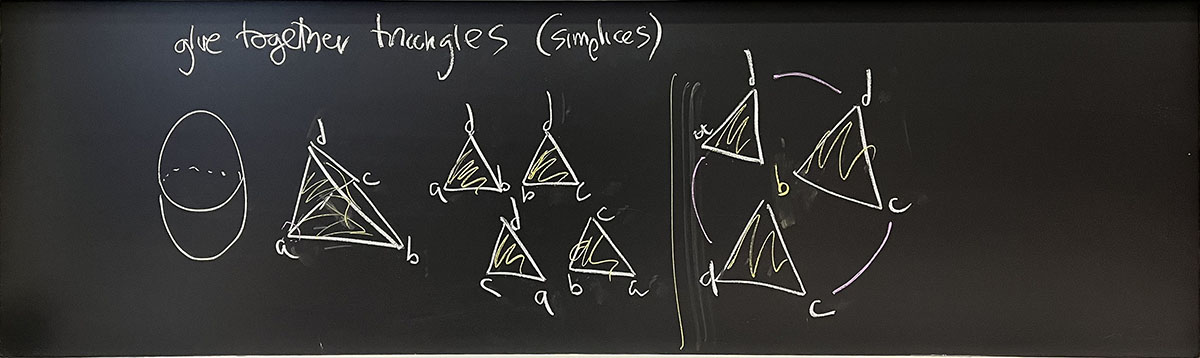 glue together triangles (simplices)
d
c
a
b
d
a
b
d
b
c
d
c
a
c
b
a
d
a
d
b
c
a
c